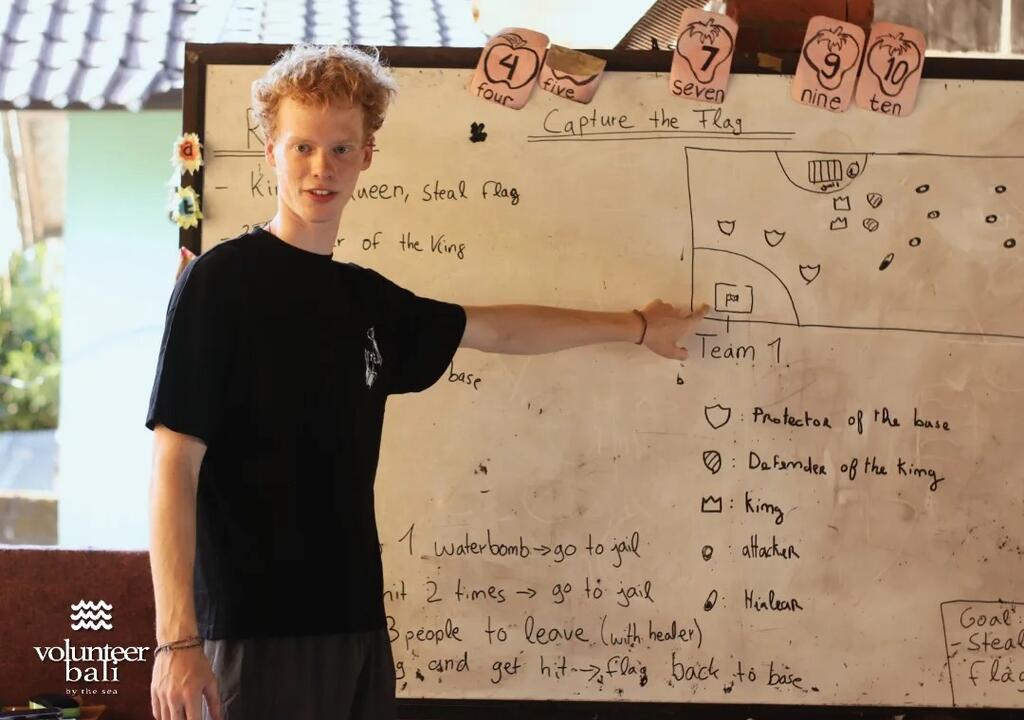 4
four
five
7
seven
9
nine
10
ten
Capture the Flag
- Ki ueen, steal flag
of the King
base
Team 1
: Protector of the base
: Defender of the King
: King
: attacker
: Hialear
1 waterbomb → go to jail
hit 2 times → go to jail
3 people to leave (with healer)
g and get hit → flag back to base
Goal:
- Steal
flag
volunteer
bali
by the sea